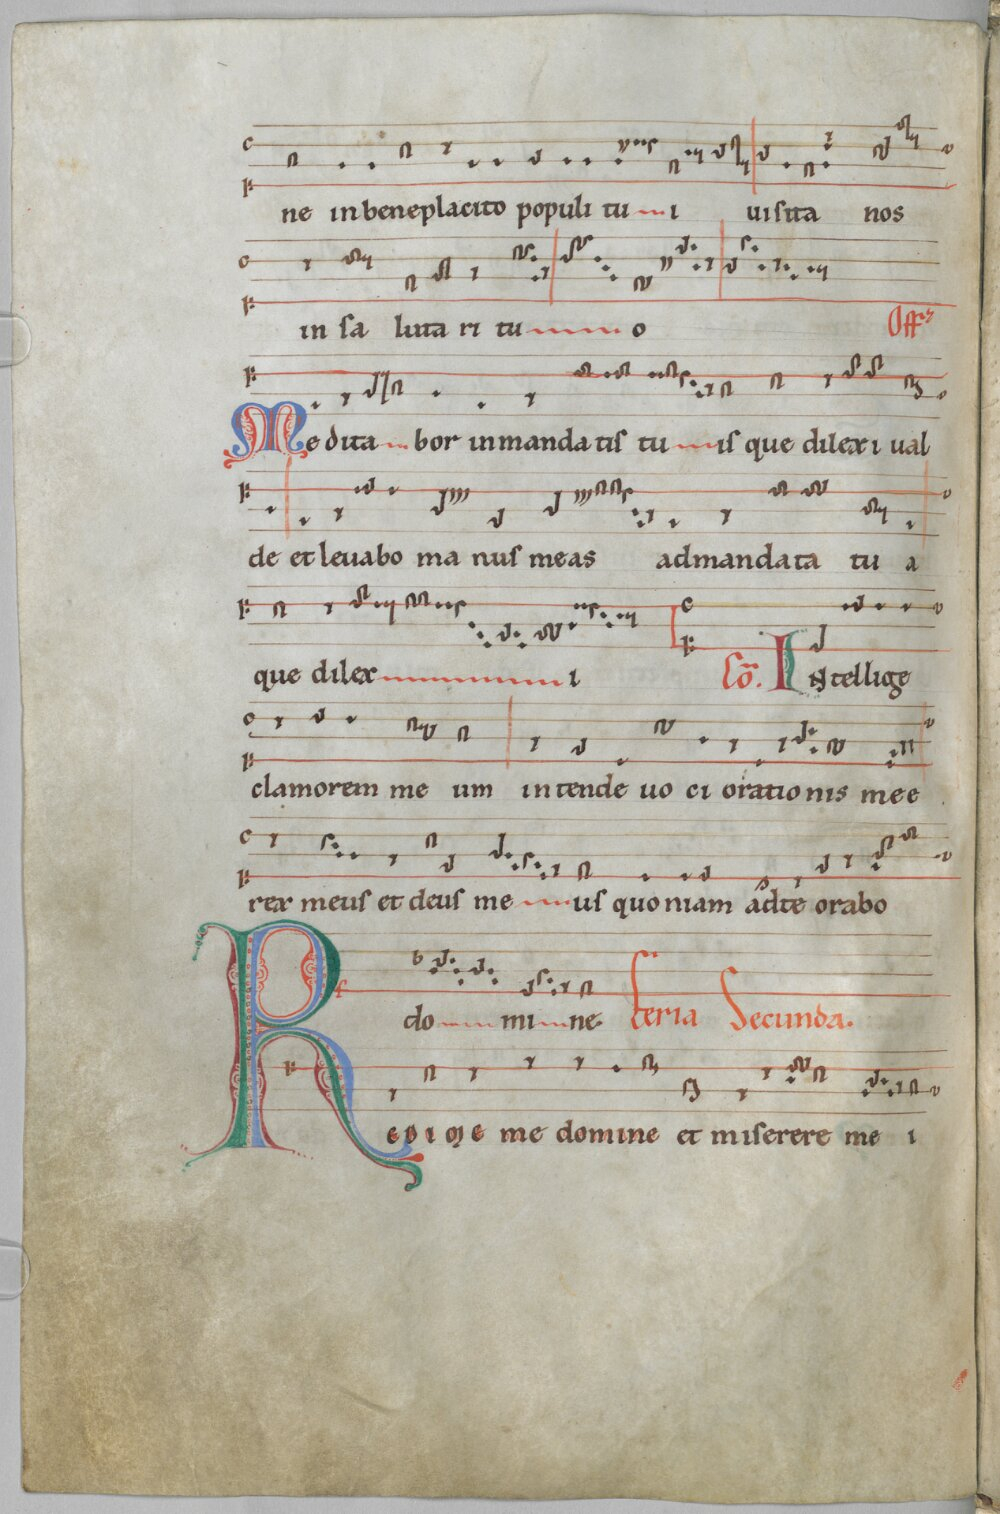 ne inbeneplacito populi tu i uisita nos
in sa luta ri tu o Off
Me dita bor inmandatis tu is que dilexi ual
de et leuabo ma nus meas admandata tu a
que dilex i Co. Intellige
clamorem me um intende uo ci orationis mee
rex meus et deus me us quoniam adte orabo
do mi ne. Feria Secunda.
REDIME me domine et miserere me i